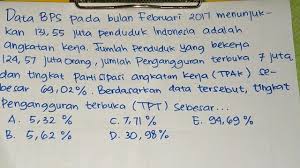 Data BPS pada bulan Februari 2017 menunjuk-
kan 131,55 juta penduduk Indonesia adalah
angkatan kerja. Jumlah Penduduk yang bekerja
124,57 juta orang, jumlah Pengangguran terbuka 7 juta,
dan tingkat Partisipasi angkatan kerja (TPAK) se-
besar 69,02%. Berdasarkan data tersebut, tingkat
Pengangguran terbuka (TPT) sebesar...
A. 5,32 % C. 7,71 % E. 94,69 %
B. 5,62 % D. 30,98%